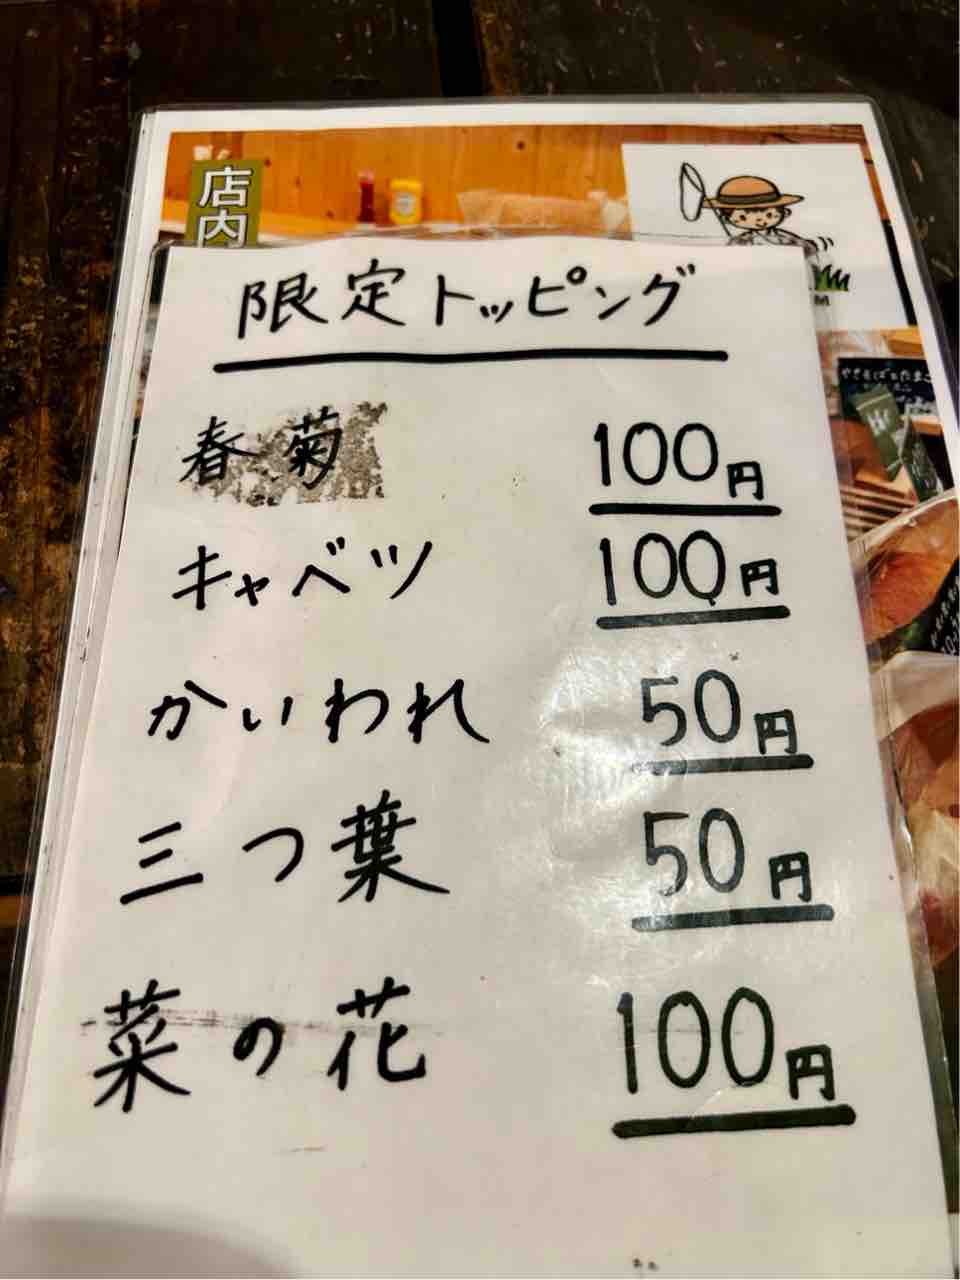 店内
限定トッピング
春菊 100円
キャベツ 100円
かいわれ 50円
三つ葉 50円
菜の花 100円